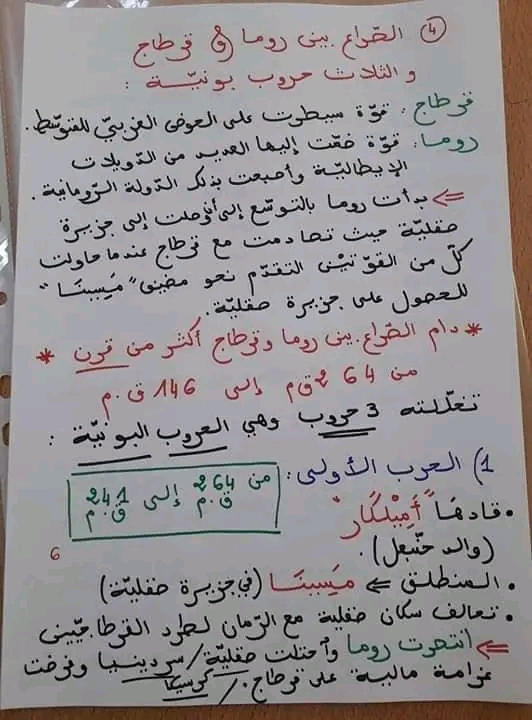 4 الصّراع بين روما و قرطاج
والثلاث حروب بونيّة :
قرطاج : قوّة سيطرت على الحوض الغربيّ للمتوسّط.
روما : قوّة ضمّت إليها العديد من الدّويلات
الإيطاليّة وأصبحت بذلك الدولة الرّومانية.
⇐ بدأت روما بالتوسّع إلى أن وصلت إلى جزيرة
صقليّة حيث تصادمت مع قرطاج عندما حاولت
كلّ من القوّتين التقدّم نحو مضيق "مَسِينَا"
للحصول على جزيرة صقليّة.
* دام الصّراع بين روما وقرطاج أكثر من قرن *
من 264 ق.م إلى 146 ق.م
تخلّلته 3 حروب وهي الحروب البونيّة :
1) الحرب الأولى :
من 264 ق.م إلى 241 ق.م
• قادها "أَمِيلْكَار"
(والد حنبعل).
6
• المنطلق ⇐ مَسِينَا (في جزيرة صقليّة)
• تحالف سكان صقلية مع الرّمان لطرد القرطاجيّين
⇐ انتصرت روما واحتلت صقليّة / سردينيا وفرضت
غرامة مالية على قرطاج. / كورسيكا